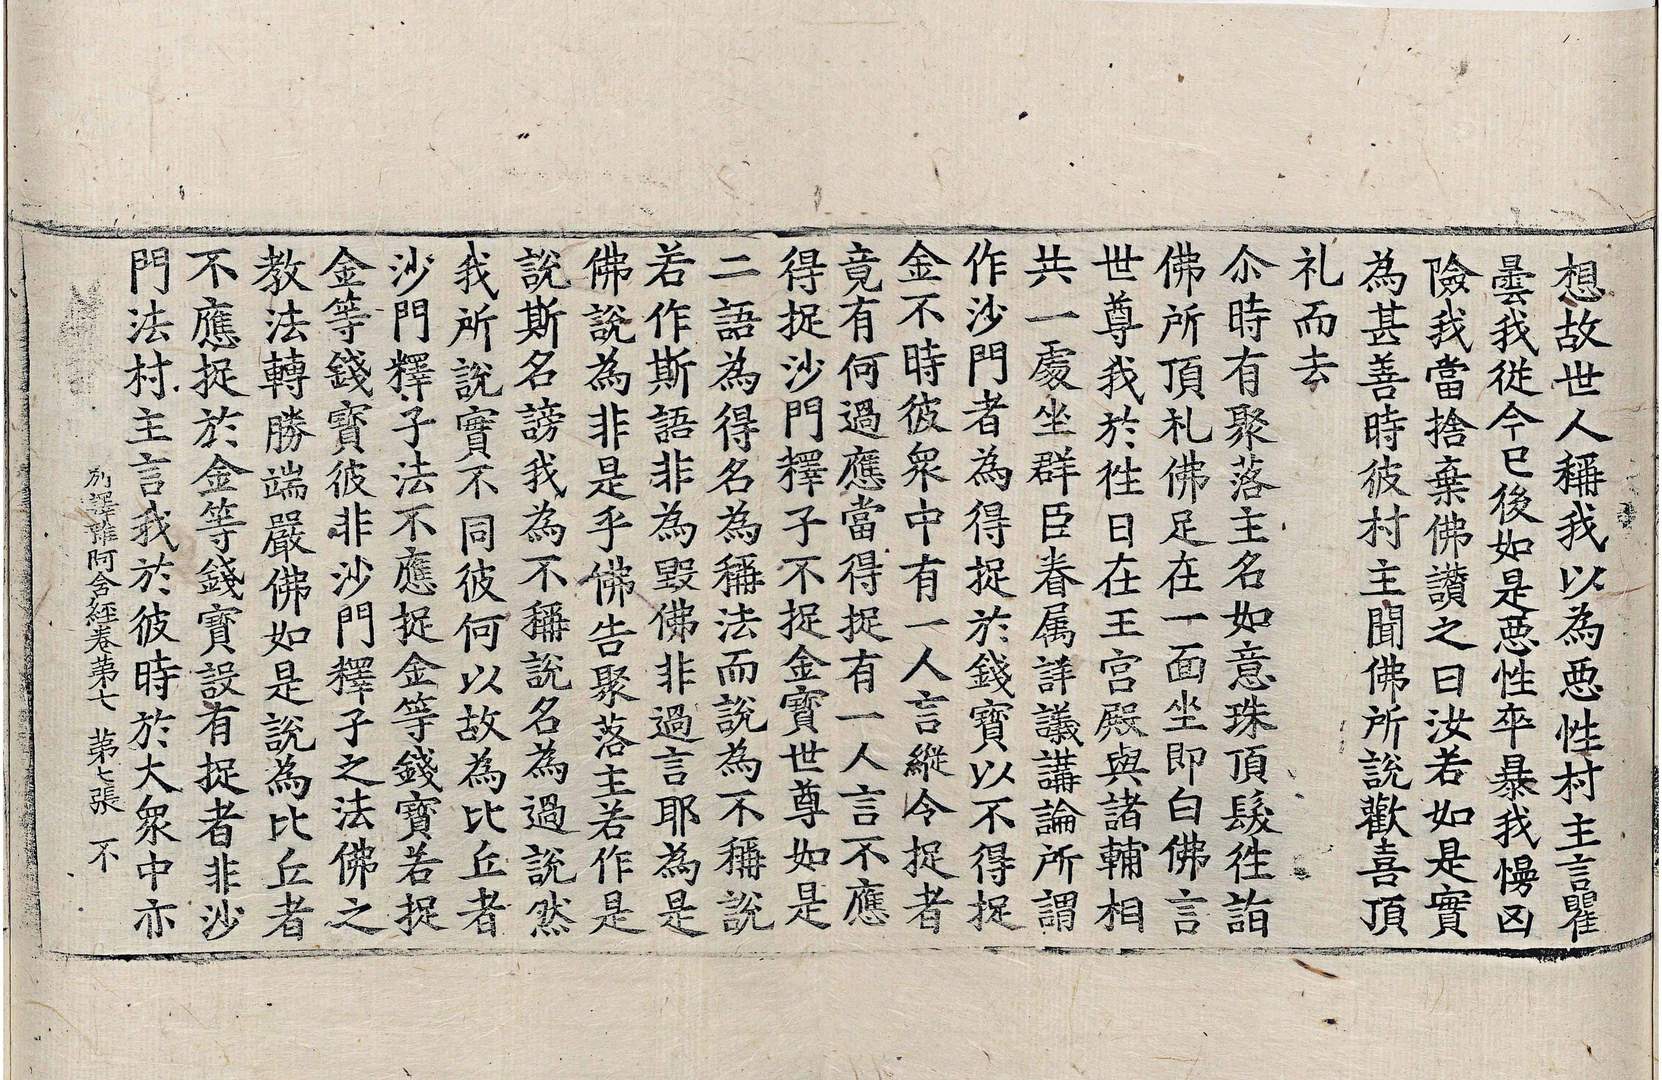 想故世人稱我以為惡性村主言瞿
曇我從今已後如是惡性卒暴我慢凶
險我當捨棄佛讃之曰汝若如是實
為甚善時彼村主聞佛所說歡喜頂
礼而去
尒時有聚落主名如意珠頂髮徃詣
佛所頂礼佛足在一面坐即白佛言
世尊我於徃日在王宫殿與諸輔相
共一處坐群臣眷属詳議講論所謂
作沙門者為得捉於錢寶以不得捉
金不時彼衆中有一人言縱令捉者
竟有何過應當得捉有一人言不應
得捉沙門釋子不捉金寶世尊如是
二語為得名為稱法而說為不稱說
若作斯語非為毀佛非過言耶為是
佛說為非是乎佛告聚落主若作是
說斯名謗我為不稱說名為過說然
我所說實不同彼何以故為比丘者
沙門釋子法不應捉金等錢寶若捉
金等錢寶彼非沙門釋子之法佛之
教法轉勝端嚴佛如是說為比丘者
不應捉於金等錢寶設有捉者非沙
門法村主言我於彼時於大衆中亦
別譯雜阿含經卷苐七 苐七張 不